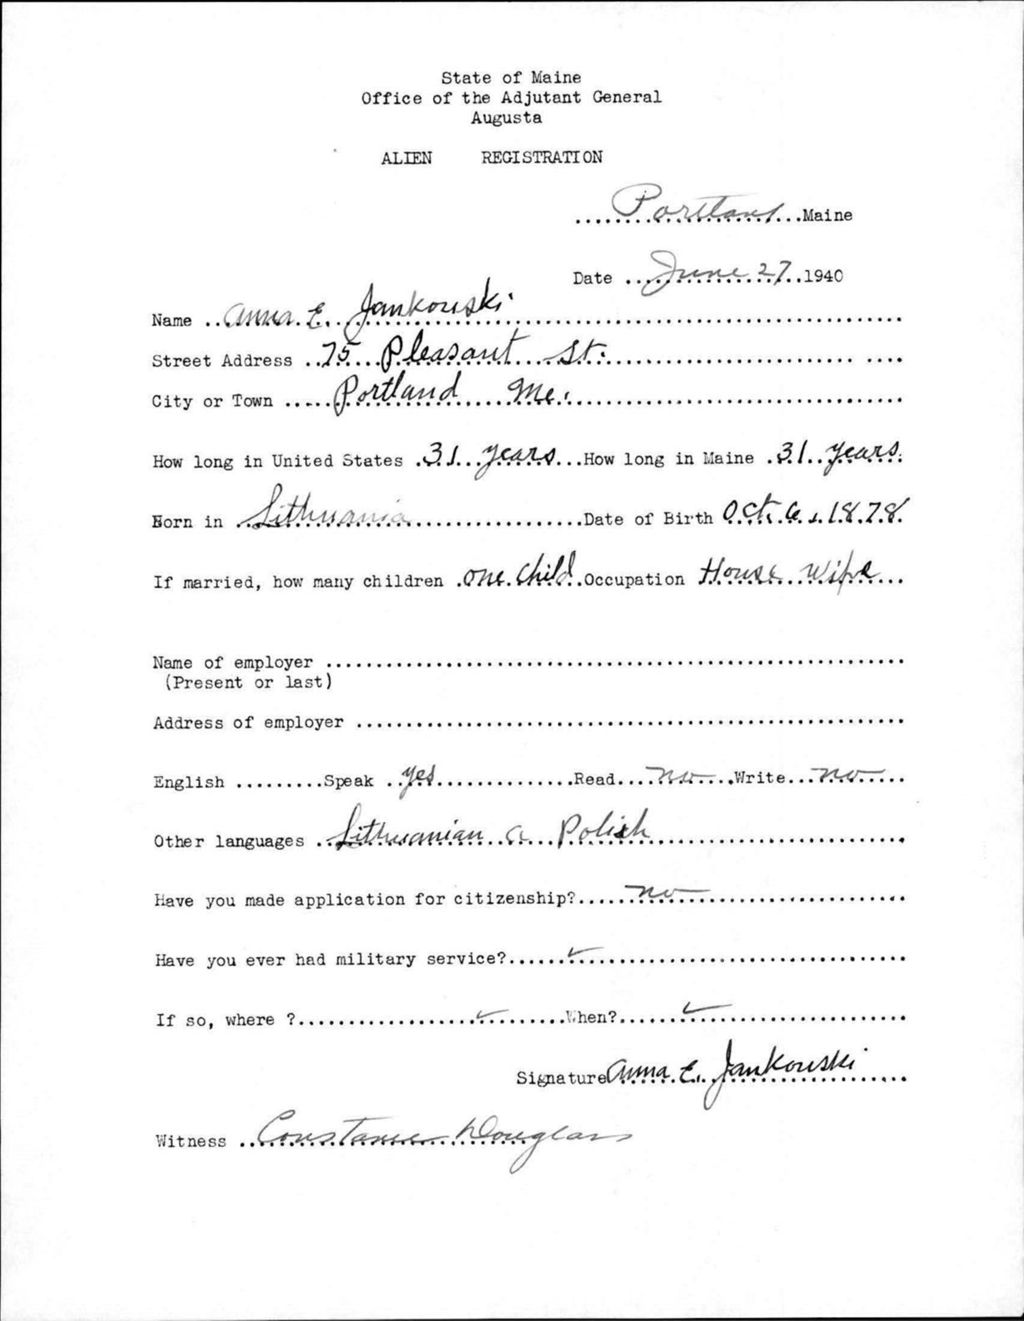 State of Maine
Office of the Adjutant General
Augusta
ALIEN REGISTRATION
Portland Maine
Date June 27 1940
Name Anna E. Jankowski
Street Address 75 Pleasant St.
City or Town Portland Me.
How long in United States 31 years How long in Maine 31 years
Born in Lithuania Date of Birth Oct. 6, 1878
If married, how many children one child Occupation House wife
Name of employer
(Present or last)
Address of employer
English Speak yes Read no Write no
Other languages Lithuanian a Polish
Have you made application for citizenship? no
Have you ever had military service? ✓
If so, where ? ✓ When? ✓
Signature Anna E. Jankowski
Witness Constance Douglass